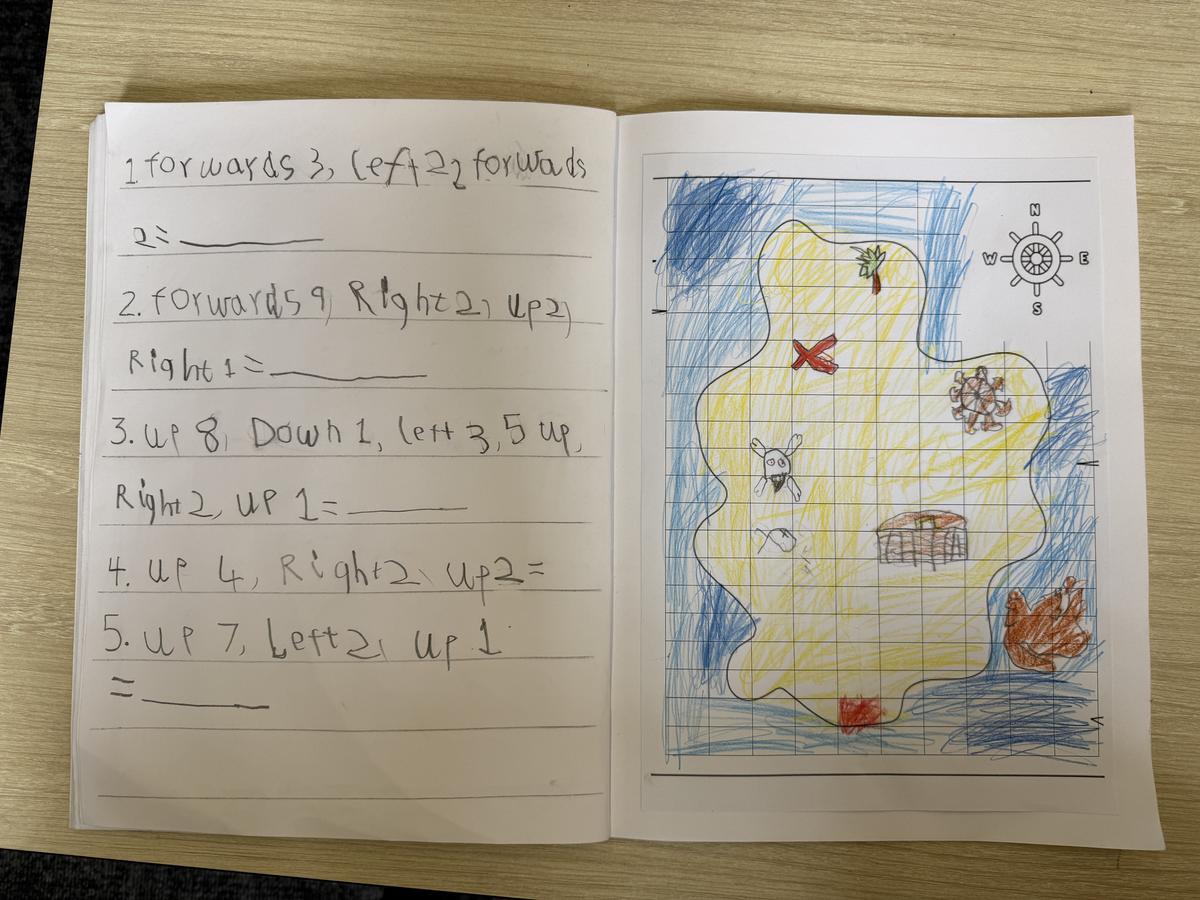 1 forwards 3, left 22 forwads
2= ________
2. forwards 9, Right 2, up 2,
Right 1 = ________
3. up 8, Down 1, left 3, 5 up,
Right 2, up 1 = ________
4. up 4, Right 2, up 2 =
5. up 7, Left 2, up 1
= ________
N
W E
S